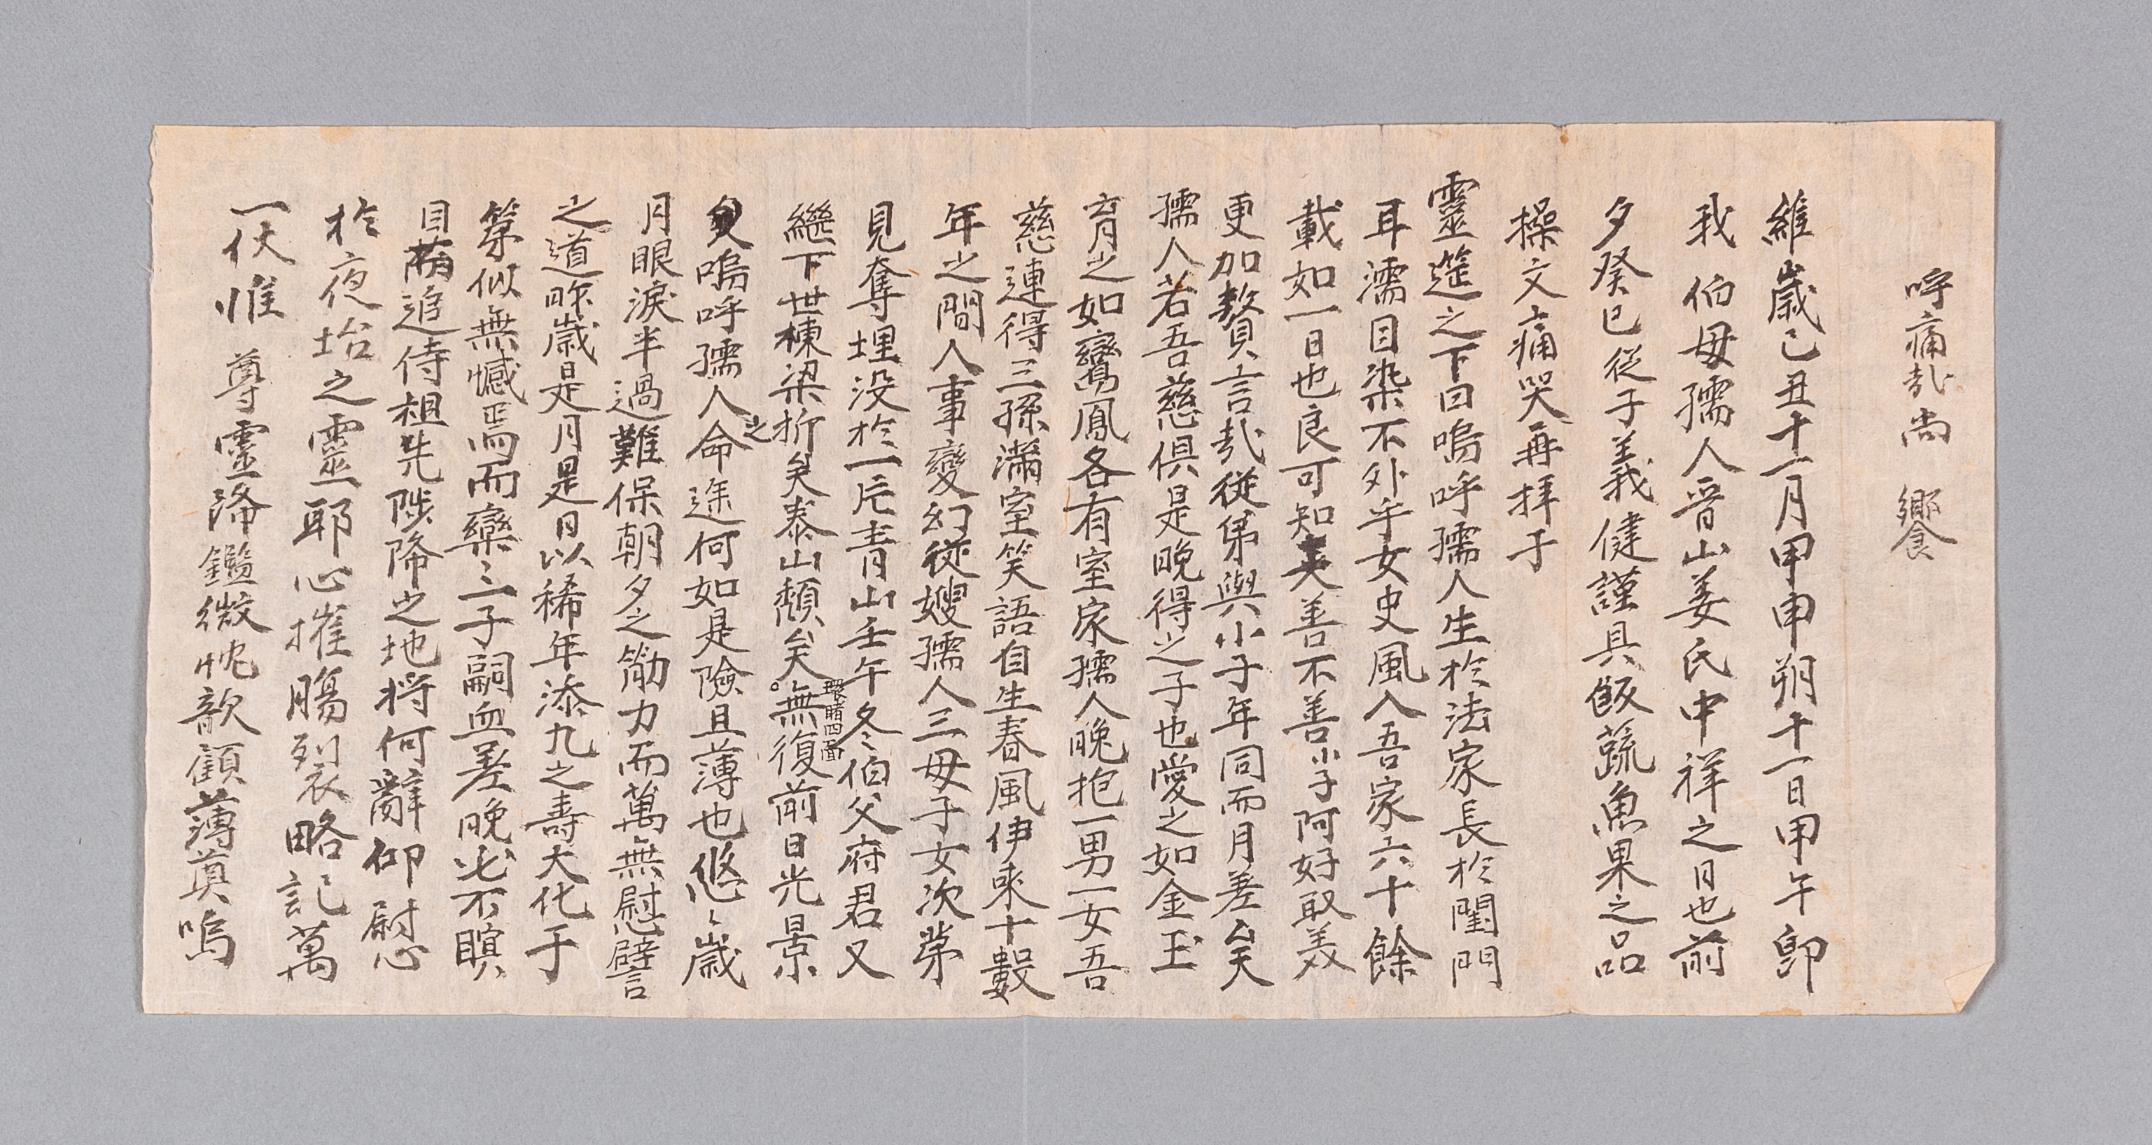 維歲己丑十一月甲申朔十一日甲午卽
我 伯母孺人晉山姜氏中祥之日也前
夕癸巳從子義健謹具飯蔬魚果之品
操文痛哭再拝于
靈筵之下曰嗚呼孺人生於法家長於閨門
耳濡目染不外乎女史風入吾家六十餘
載如一日也良可知矣善不善小子阿好取美
更加贅言哉從弟與小子年同而月差矣
孺人若吾慈俱是晚得之子也愛之如金玉
育之如鸞鳳各有室家孺人晚抱一男一女吾
慈連得三孫滿室笑語自生春風伊來十數
年之間人事變幻從嫂孺人三母子女次第
見奪埋没於一片青山壬午冬伯父府君又
繼下世棟梁折矣泰山頹矣環睹四面無復前日光景
矣嗚呼孺人之命途何如是險且薄也悠〻歲
月眼淚半過難保朝夕之筋力而萬無慰譬
之道昨歲是月是日以稀年添九之壽大化于
第似無憾焉而欒〻二子嗣血差晚必不瞑
目前追侍祖先陟降之地將何辭仰慰
於夜坮之靈耶心摧腸裂略記萬
一伏惟 尊靈降鑑微忱歆顧薄奠嗚
呼痛哉尚 饗